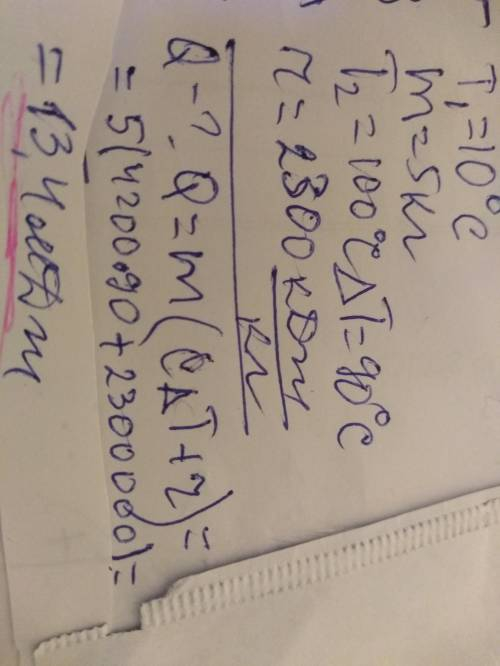 T₁ = 10°C
m = 5 кг
T₂ = 100°C ΔT = 90°C
r = 2300 кДж/кг
Q - ?. Q = m(cΔT + r) =
= 5(4200·90 + 2300000) =
= 13,4 МДж